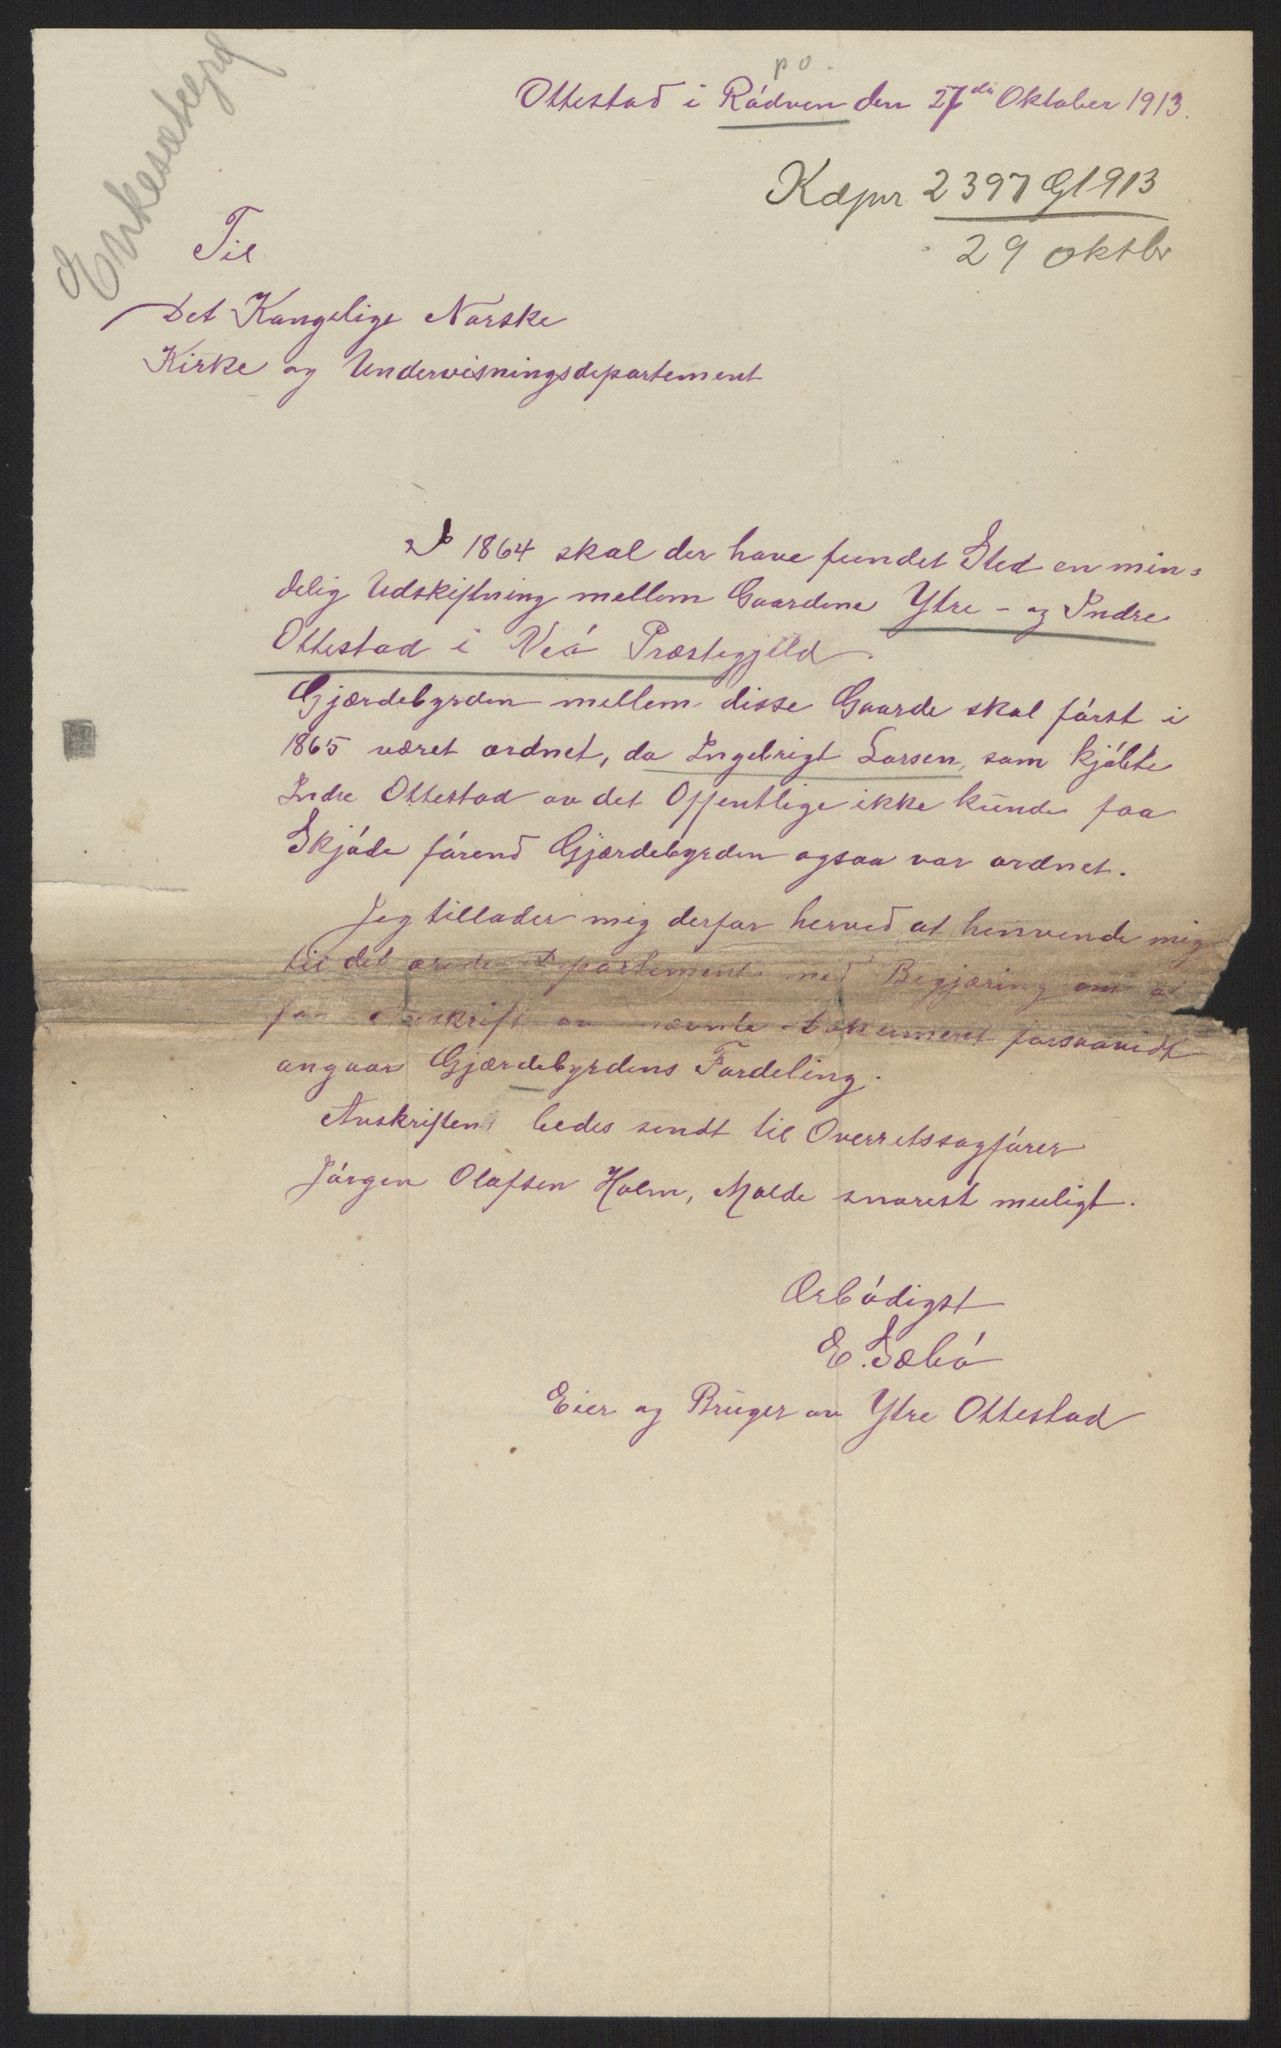 Enkesædegrd
p o.
Ottestad i Rødven den 27de Oktober 1913.
Kdpnr 2397 G 1913
29 oktbr
Til
Det Kongelige Norske
Kirke og Undervisningsdepartement
I 1864 skal der have fundet Sted en min-
delig Udskiftning mellem Gaardene Ytre- og Indre
Ottestad i Veø Præstegjeld.
Gjærdebyrden mellem disse Gaarde skal først i
1865 været ordnet, da Ingebrigt Larsen, som kjøbte
Indre Ottestad av det Offentlige ikke kunde faa
Skjøde førend Gjærdebyrden ogsaa var ordnet.
Jeg tillader mig derfor herved at henvende mig
til det ærede Departement med Begjæring om at
faa Avskrift av nævnte Dokument forsaavidt
angaar Gjærdebyrdens Fordeling.
Avskriften bedes sendt til Overretssagfører
Jørgen Olafsen Holm, Molde snarest muligt.
Ærbødigst
E. Sæbø
Eier og Bruger av Ytre Ottestad